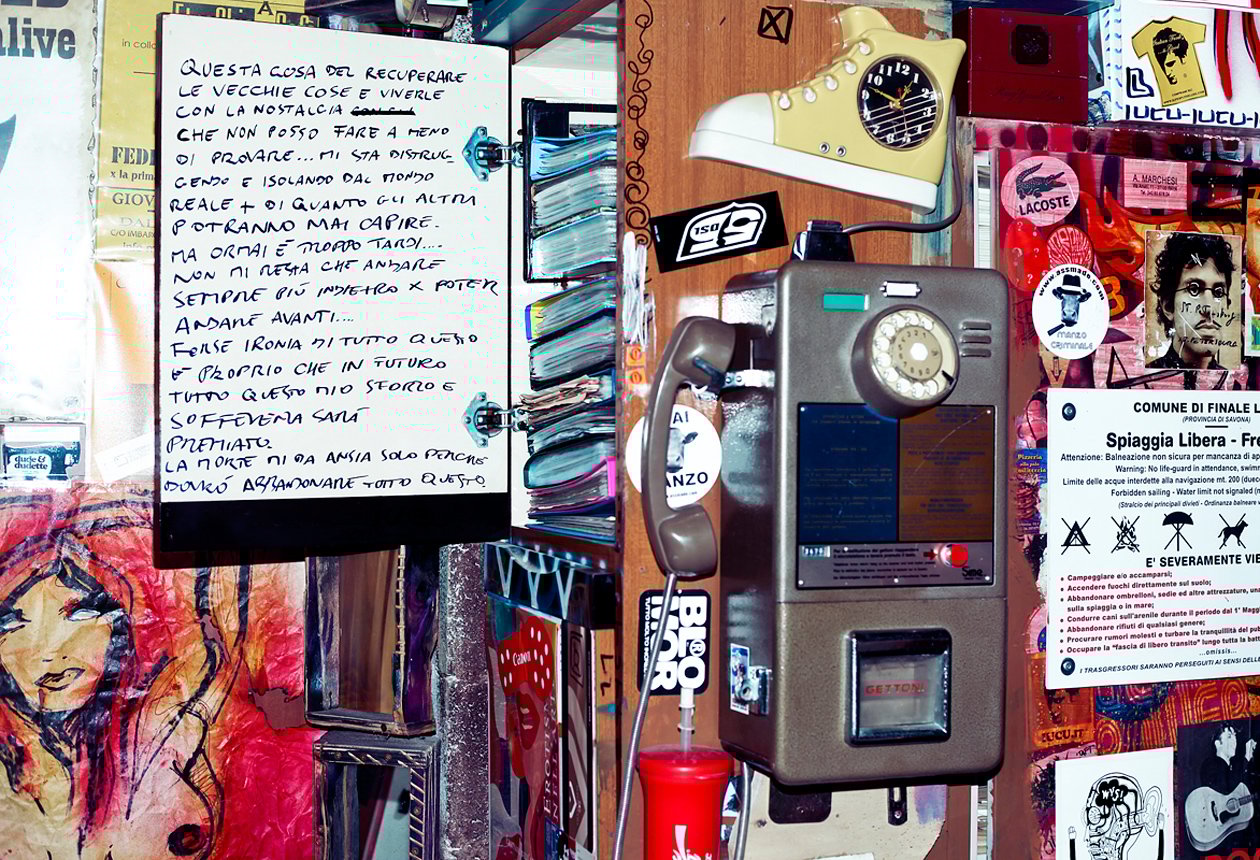 alive
in colla
FEDE
x la prim
GIOV
DAL
C/O IMBAR
QUESTA COSA DEL RECUPERARE
LE VECCHIE COSE E VIVERLE
CON LA NOSTALGIA
CHE NON POSSO FARE A MENO
DI PROVARE... MI STA DISTRUG-
GENDO E ISOLANDO DAL MONDO
REALE + DI QUANTO GLI ALTRI
POTRANNO MAI CAPIRE.
MA ORMAI È TROPPO TARDI....
NON MI RESTA CHE ANDARE
SEMPRE PIÙ INDIETRO X POTER
ANDARE AVANTI....
FORSE IRONIA DI TUTTO QUESTO
È PROPRIO CHE IN FUTURO
TUTTO QUESTO MIO SFORZO E
SOFFERENZA SARÀ
PREMIATO.
LA MORTE MI DA ANSIA SOLO PERCHÉ
DOVRÒ ABBANDONARE TUTTO QUESTO.
dude&
dudette
10 11 12 1
55
DSL
AI
ANZO
BIRO
Canon
GETTONI
Sime
LUCU-LUCU-L
LACOSTE
A. MARCHESI
www.assmade.com
MANZO
CRIMINALE
Pizzeria
COMUNE DI FINALE L
(PROVINCIA DI SAVONA)
Spiaggia Libera - Fre
Attenzione: Balneazione non sicura per mancanza di ap
Warning: No life-guard in attendance, swim
Limite delle acque interdette alla navigazione mt. 200 (duec
Forbidden sailing - Water limit not signaled (m
(Stralcio dei principali divieti - Ordinanza balneare
E' SEVERAMENTE VIE
Campeggiare e/o accamparsi;
Accendere fuochi direttamente sul suolo;
Abbandonare ombrelloni, sedie ed altre attrezzature, una
sulla spiaggia o in mare;
Condurre cani sull'arenile durante il periodo dal 1° Magg
Abbandonare rifiuti di qualsiasi genere;
Procurare rumori molesti e turbare la tranquillità del pub
Occupare la "fascia di libero transito" lungo tutta la batt
...omissis...
I TRASGRESSORI SARANNO PERSEGUITI AI SENSI DELLE
LUCU.IT